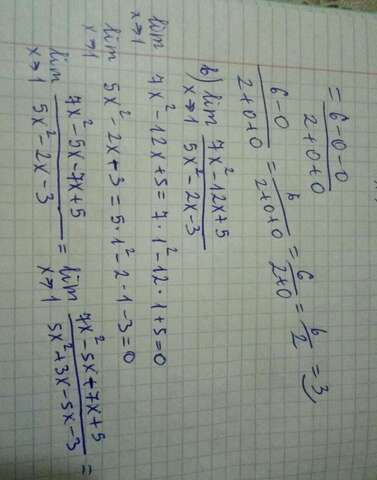 = 6-0-0 / 2+0+0
6-0 / 2+0+0 = 6 / 2+0+0 = 6 / 2+0 = 6 / 2 = 3
b) lim x→1 7x²-12x+5 / 5x²-2x-3
lim x→1 7x²-12x+5=7·1²-12·1+5=0
lim x→1 5x²-2x+3=5·1²-2·1-3=0
lim x→1 7x²-5x-7x+5 / 5x²-2x-3 = lim x→1 7x²-5x+7x+5 / 5x²+3x-5x-3 =